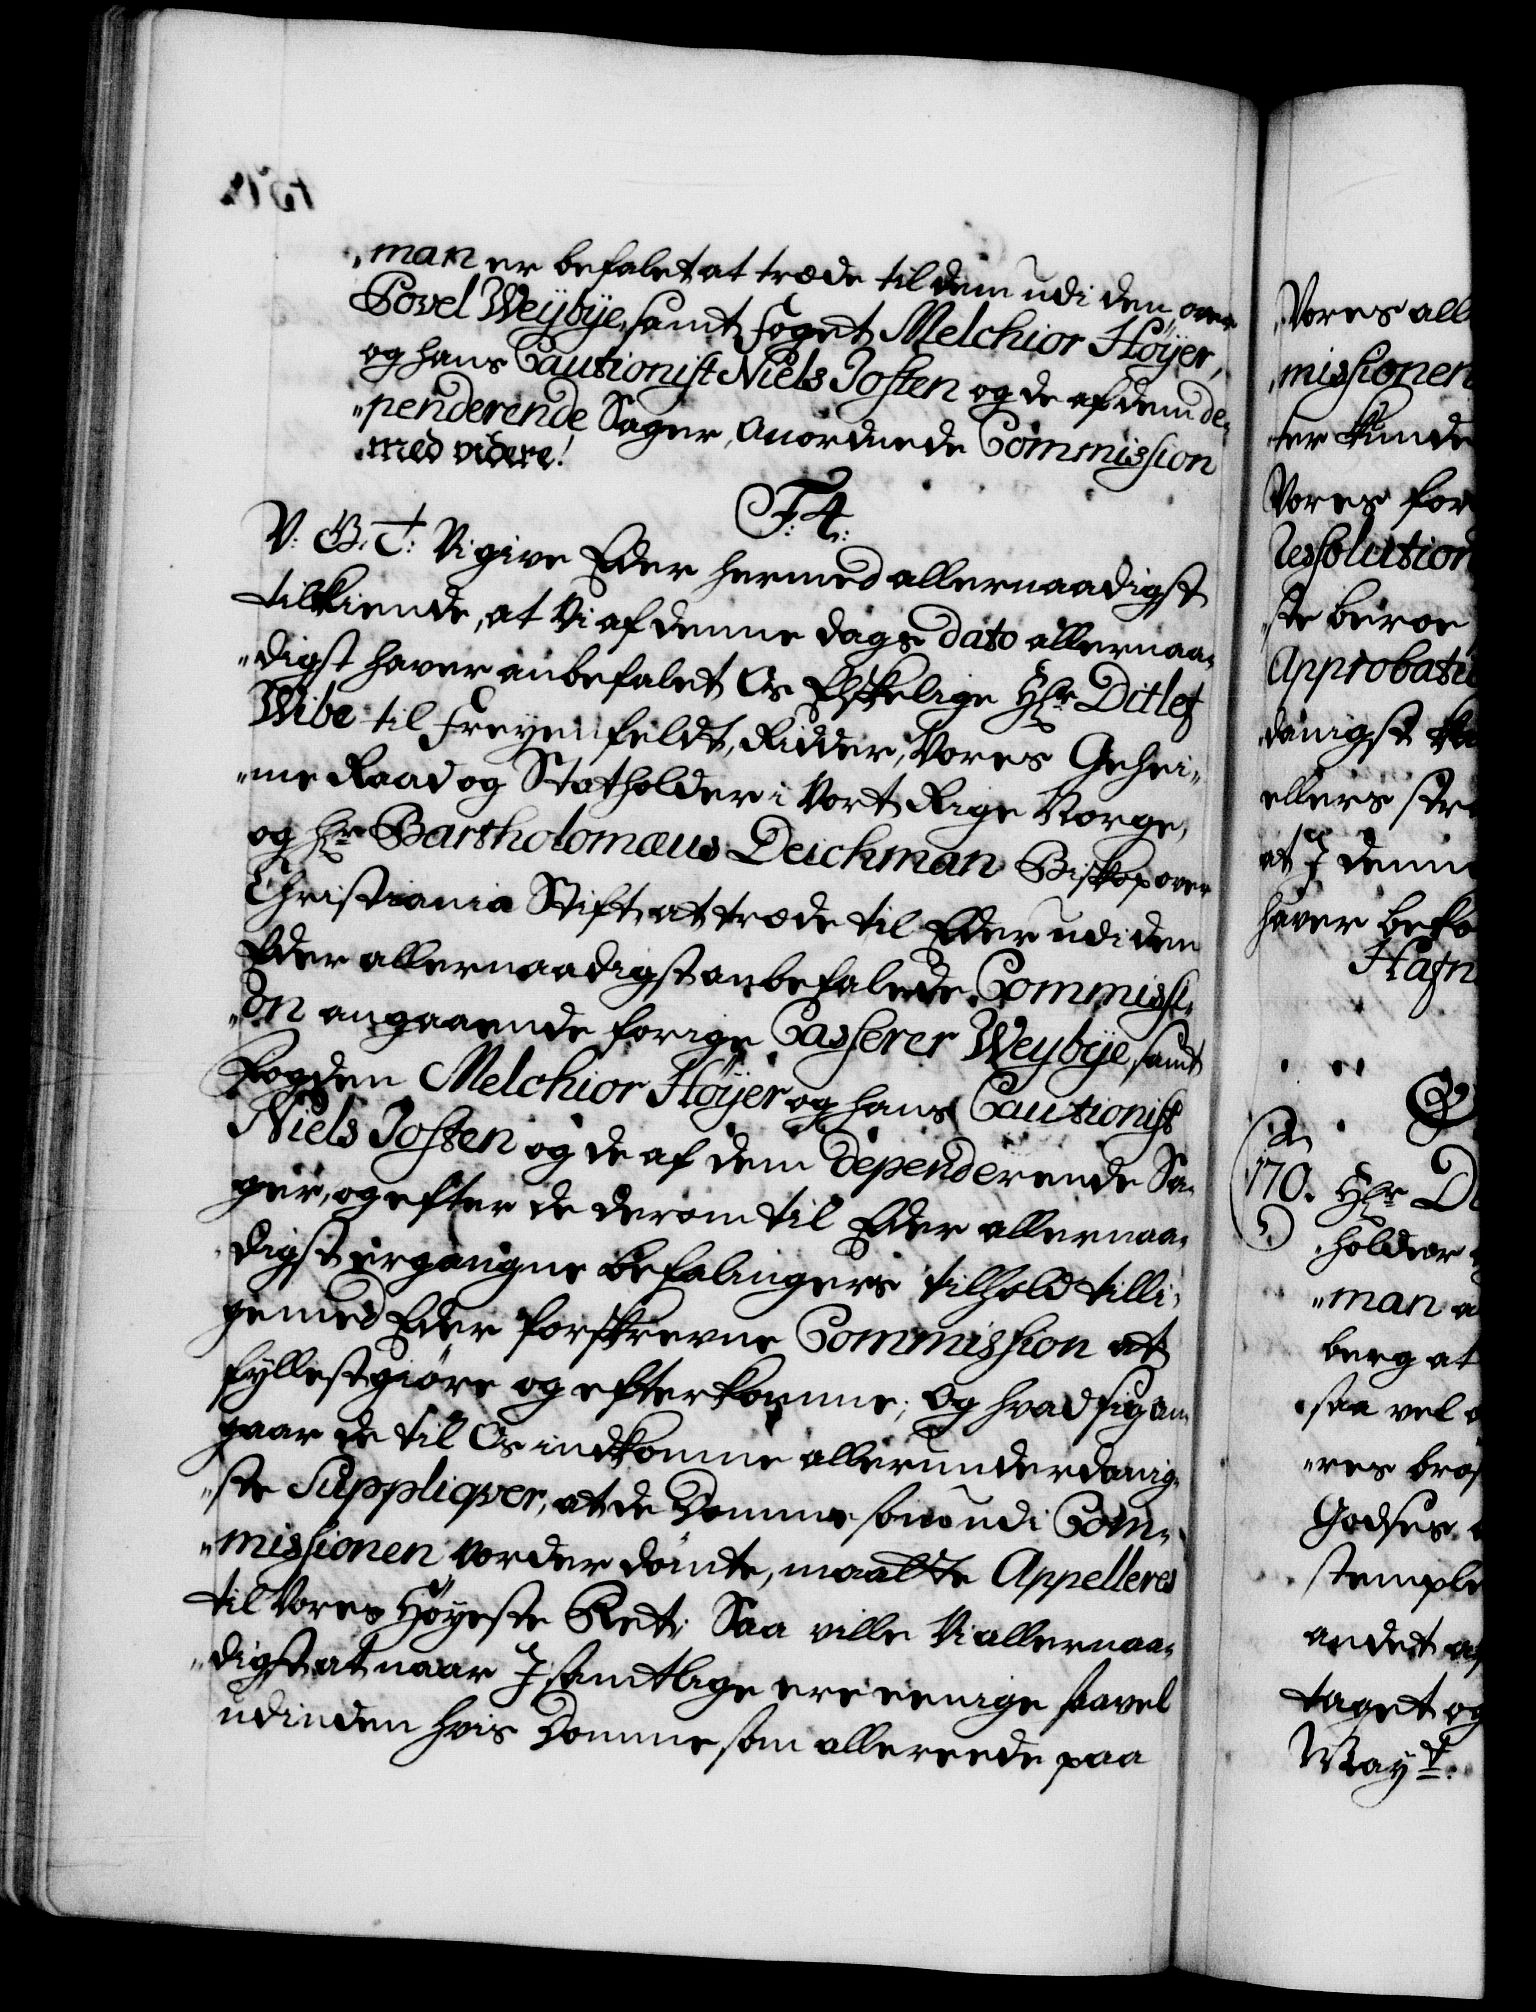 „man er befalet at træde til dem udi den over
Povel Weybye, samt Foget Melchior Höyer,
og hans Cautionist Niels Josten og de af dem de„
„penderende Sager, anordnede Commission
med videre!
F. 4.
V: G: T: Vi give Eder hermed allernaadigst
tilkiende, at Vi af denne dags dato allernaa„
„digst haver anbefalet Os Elskelige Hr Ditlef
Wibe til Freyenfeldt, Ridder, Vores Gehei„
„me Raad og Statholder i Vort Rige Norge,
og Hr Bartholomæus Deichman Biskop over
Christiania Stift, at træde til Eder udi den
Eder allernaadigst anbefalede Commissi„
„on angaaende forige Casserer Weybye, samt
Fogden Melchior Höyer og hans Cautionist
Niels Josten og de af dem dependerende Sa„
ger, og efter de derom til Eder allernaa„
digst ergangne befalingers tilhold tilli„
gemed Eder forskrevne Commission at
fyllestgiöre og efterkomme; Og hvad sig an„
gaar de til Os indkomne allerunderdanig„
„ste Suppliqver, at de Domme som udi Com„
„missionen vorder dömte, maatte Appelleres
til Vores Höyeste Ret; Saa ville Vi allernaa„
„digst, at naar I samtlige ere eenige saavel
udi den hvis Domme som allereede paa
Vores all
missionen
ter kunde
Vores for
Resolution
ste beroe
Approbati
danigst
ellers
at I denne
haver
Hafn
170. Hr D
holder
„man
berg at
saa vel
„res
Godses
stemple
andet
taget og
May